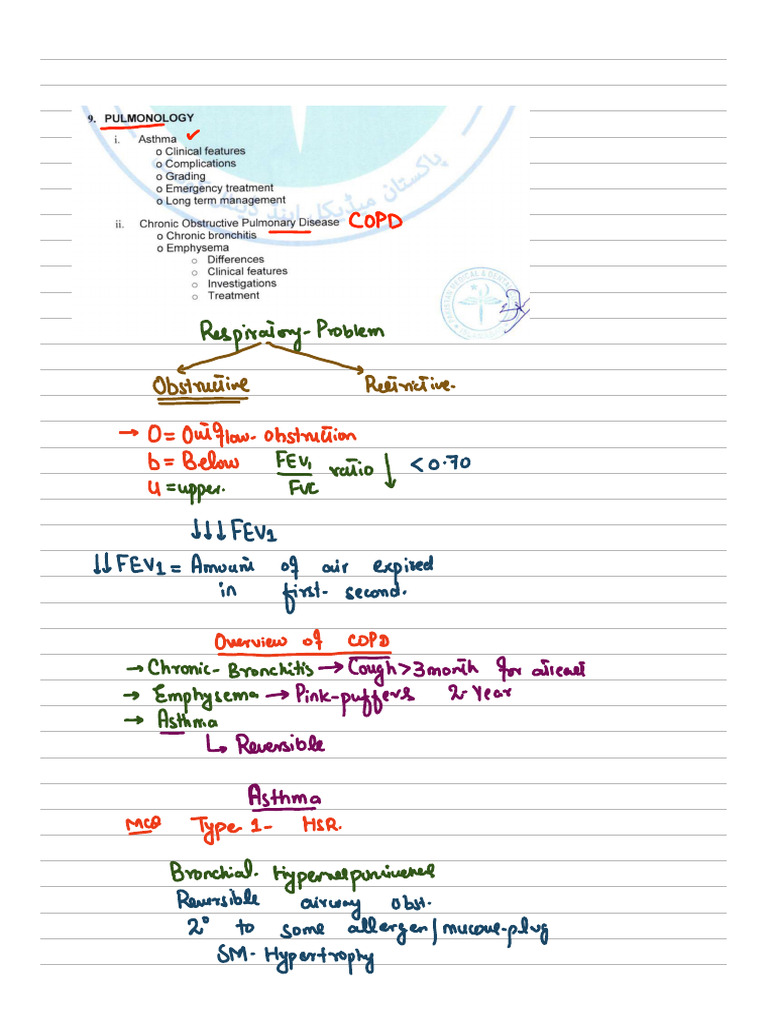 9. PULMONOLOGY
i. Asthma ✓
o Clinical features
o Complications
o Grading
o Emergency treatment
o Long term management
ii. Chronic Obstructive Pulmonary Disease COPD
o Chronic bronchitis
o Emphysema
o Differences
o Clinical features
o Investigations
o Treatment
پاکستان میڈیکل اینڈ
PAKISTAN MEDICAL & DENTAL
Respiratory-Problem
Obstructive Restrictive.
→ O = Outflow-obstruction
b = Below FEV1/FVC ratio ↓ <0.70
u = upper.
↓↓↓FEV1
↓↓FEV1 = Amount of air expired
in first-second.
Overview of COPD
→ Chronic-Bronchitis → Cough > 3 month for atleast
→ Emphysema → Pink-puffers 2 Year
→ Asthma
↳ Reversible
Asthma
MCQ Type 1- HSR.
Bronchial. Hyperresponsiveness
Reversible airway obst.
2° to some allergen/mucous-plug
SM-Hypertrophy